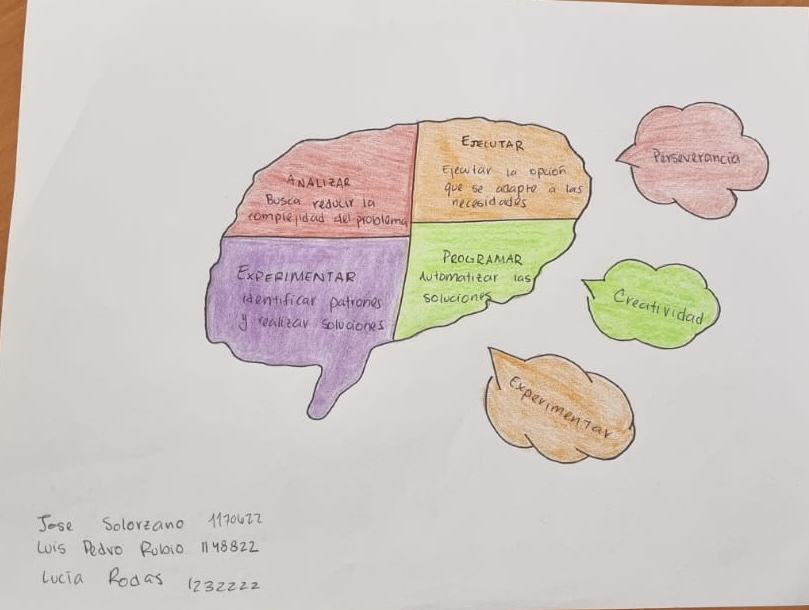 ANALIZAR
Busca reducir la
complejidad del problema
EJECUTAR
Ejecutar la opción
que se adapte a las
necesidades
EXPERIMENTAR
identificar patrones
y realizar soluciones
PROGRAMAR
Automatizar las
soluciones
Perseverancia
Creatividad
Experimentar
Jose Solorzano 1170622
Luis Pedro Rubio 1148822
Lucía Rodas 1232222